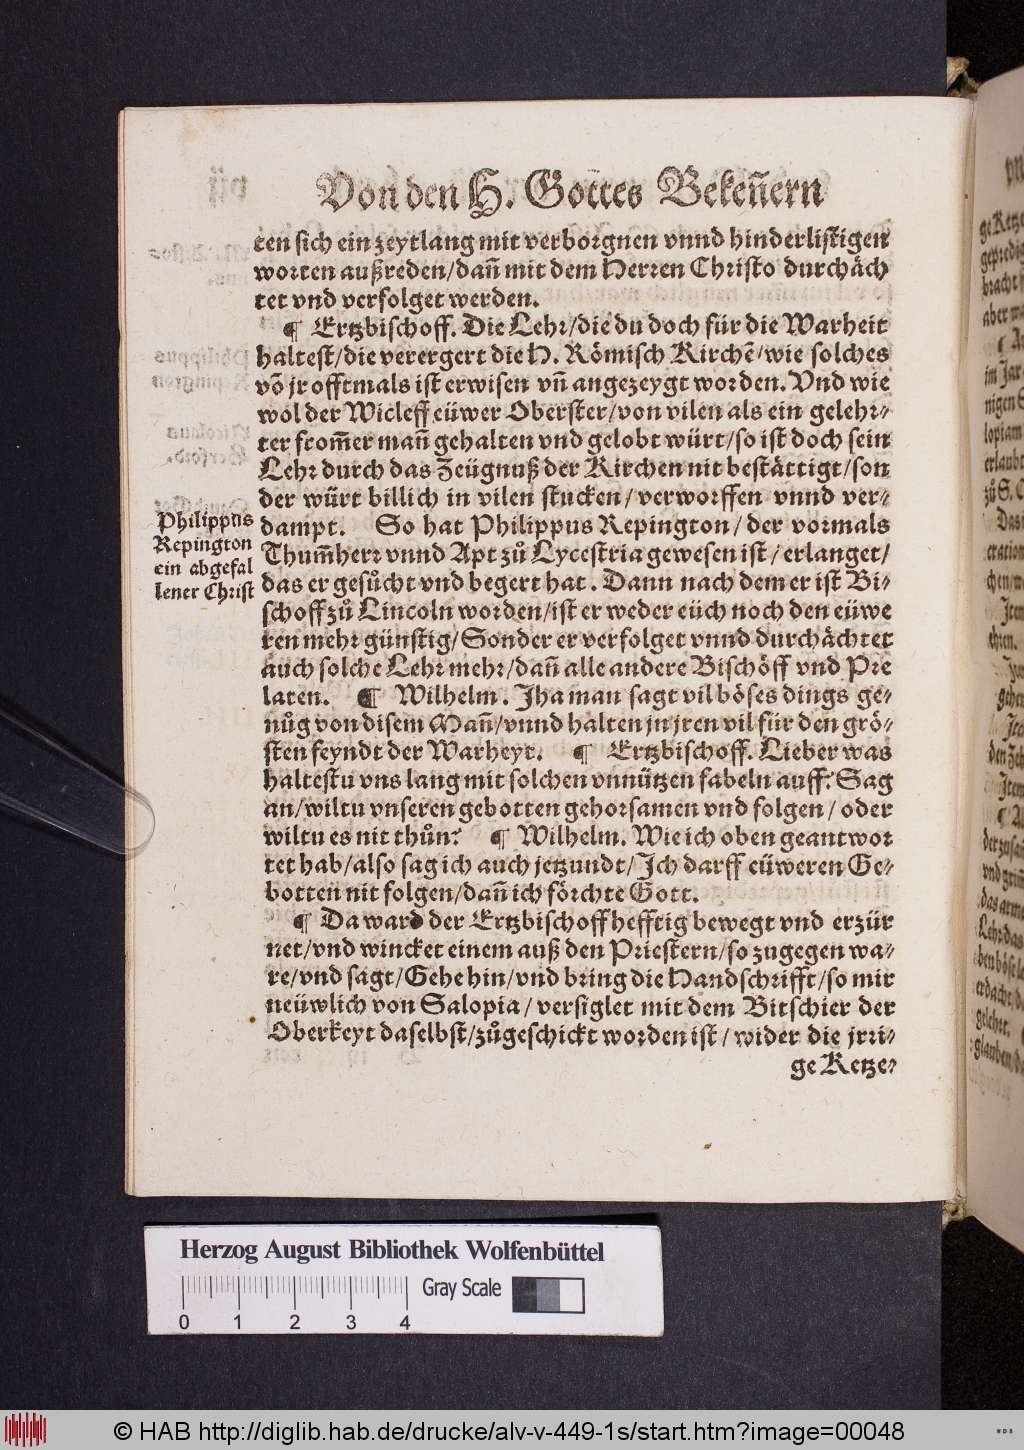 Von den H. Gottes Bekeñern
ten sich ein zeytlang mit verborgnen vnnd hinderlistigen
worten außreden/dañ mit dem Herren Christo durchäch
tet vnd verfolget werden.
¶ Ertzbischoff. Die Lehr/die du doch für die Warheit
haltest/die verergert die H. Römisch Kirchẽ/wie solches
võ jr offtmals ist erwisen vñ angezeygt worden. Vnd wie
wol der Wicleff eüwer Oberster/von vilen als ein gelehr⸗
ter from̃er mañ gehalten vnd gelobt würt/so ist doch sein
Lehr durch das Zeügnuß der Kirchen nit bestättigt/son
der würt billich in vilen stucken/verworffen vnnd ver⸗
dampt. So hat Philippus Repington/der vormals
Thum̃herr vnnd Apt zů Lycestria gewesen ist/erlanget/
das er gesůcht vnd begert hat. Dann nach dem er ist Bi⸗
schoff zů Lincoln worden/ist er weder eüch noch den eüwe
ren mehr günstig/Sonder er verfolget vnnd durchächtet
auch solche Lehr mehr/dañ alle andere Bischöff vnd Pre
laten. ¶ Wilhelm. Jha man sagt vil böses dings ge⸗
nůg von disem Mañ/vnnd halten jn jren vil für den grö⸗
sten feyndt der Warheyt. ¶ Ertzbischoff. Lieber was
haltestu vns lang mit solchen vnnützen fabeln auff? Sag
an/wiltu vnseren gebotten gehorsamen vnd folgen/oder
wiltu es nit thůn? ¶ Wilhelm. Wie ich oben geantwor
tet hab/also sag ich auch jetzundt/Jch darff eüweren Ge⸗
botten nit folgen/dañ ich förchte Gott.
¶ Da ward der Ertzbischoff hefftig bewegt vnd erzür
net/vnd wincket einem auß den Priestern/so zugegen wa⸗
re/vnd sagt/Gehe hin/vnd bring die Handschrifft/so mir
neüwlich von Salopia/versiglet mit dem Bitschier der
Oberkeyt daselbst/zůgeschickt worden ist/wider die jrri⸗
ge Ketze⸗
Philippus
Repington
ein abgefal
lener Christ
Herzog August Bibliothek Wolfenbüttel
Gray Scale
0 1 2 3 4
© HAB http://diglib.hab.de/drucke/alv-v-449-1s/start.htm?image=00048